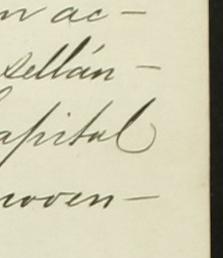 n ac-
sellán-
apital
noven-